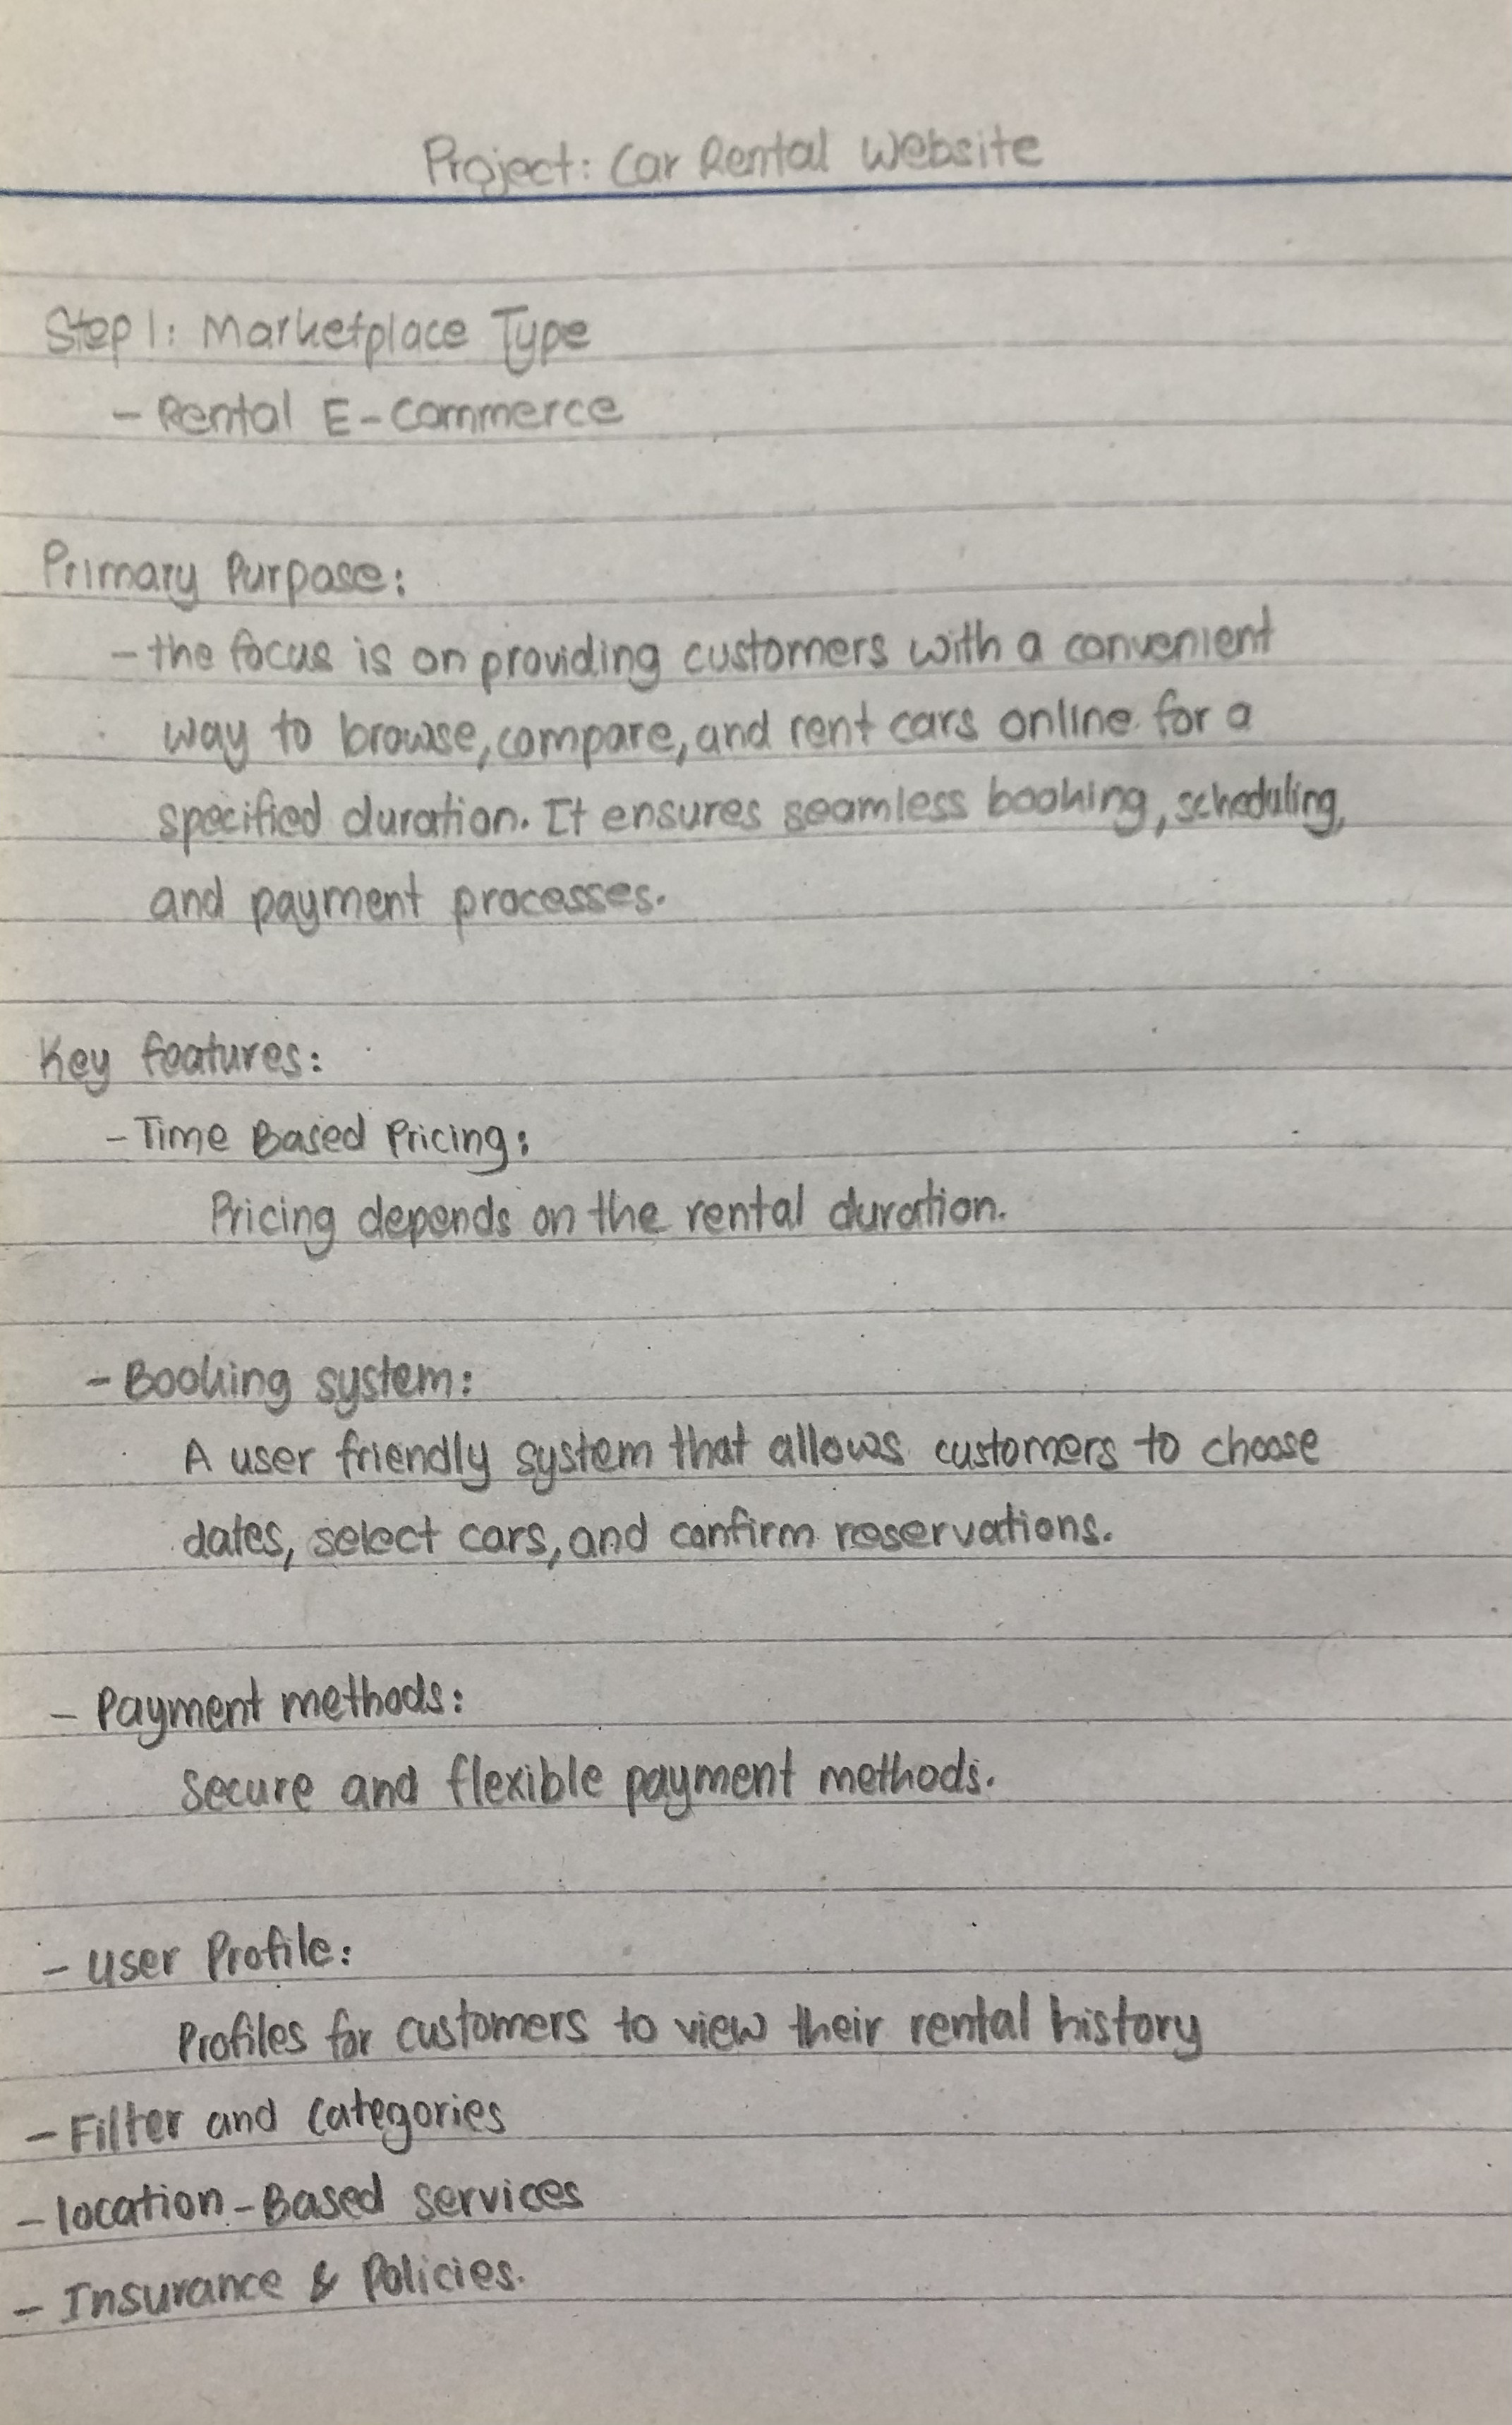 Project: Car Rental Website
Step 1: Marketplace Type
- Rental E-Commerce
Primary Purpose:
- the focus is on providing customers with a convenient
way to browse, compare, and rent cars online for a
specified duration. It ensures seamless booking, scheduling,
and payment processes.
Key features:
- Time Based Pricing:
Pricing depends on the rental duration.
- Booking system:
A user friendly system that allows customers to choose
dates, select cars, and confirm reservations.
- Payment methods:
Secure and flexible payment methods.
- User Profile:
Profiles for customers to view their rental history
- Filter and Categories
- location-Based services
- Insurance & Policies.